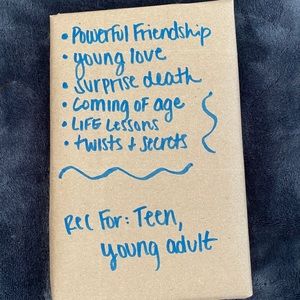 • Powerful Friendship
• young love
• Surprise death
• Coming of age
• LIFE Lessons
• twists + secrets
Rec For: Teen,
young adult